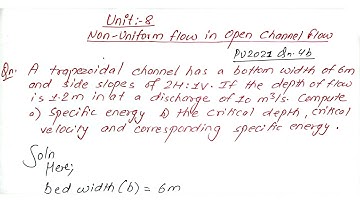 Unit:-8
Non-Uniform flow in open channel flow
PU2021 Qn.4b
Qn. A trapezoidal channel has a bottom width of 6m
and side slopes of 2H:1V. If the depth of flow
is 1.2m in at a discharge of 10 m³/s. Compute
a) Specific energy b) the critical depth, critical
velocity and corresponding specific energy.
Soln
Here;
bed width (b) = 6m